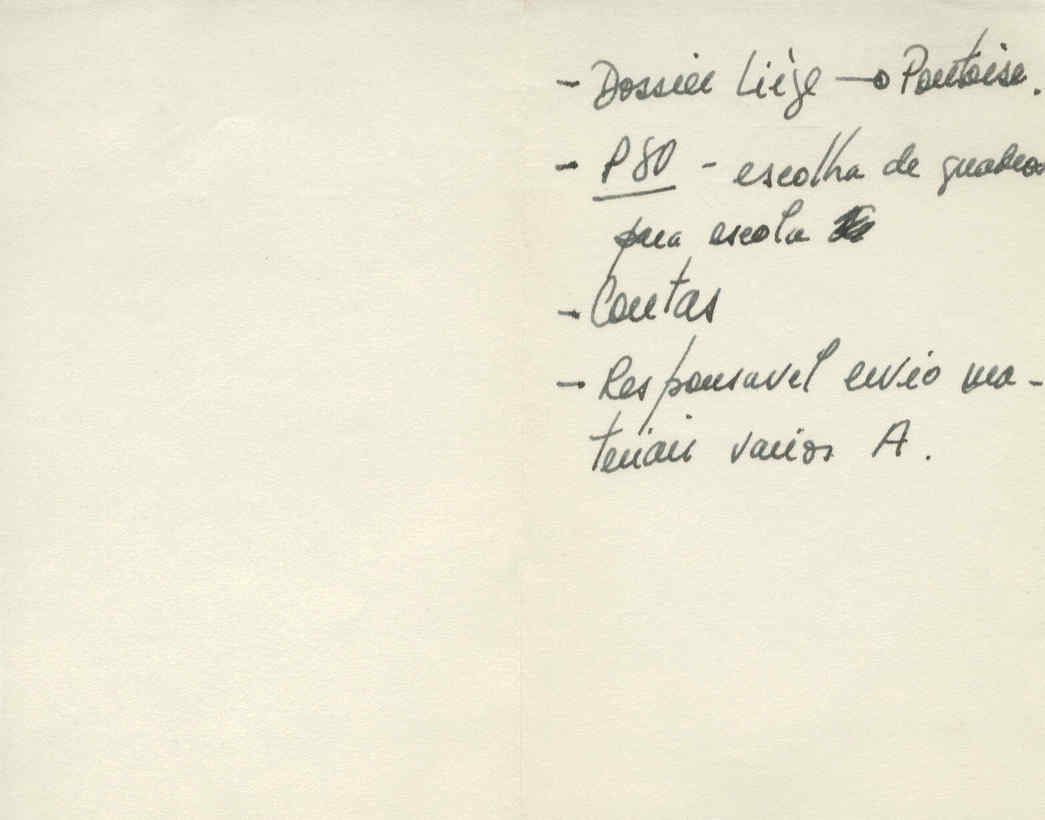 - Dossier Liège → Pontoise.
- P80 - escolha de quadros
para escola
- Contas
- Responsavel envio ma-
teriais varios A.